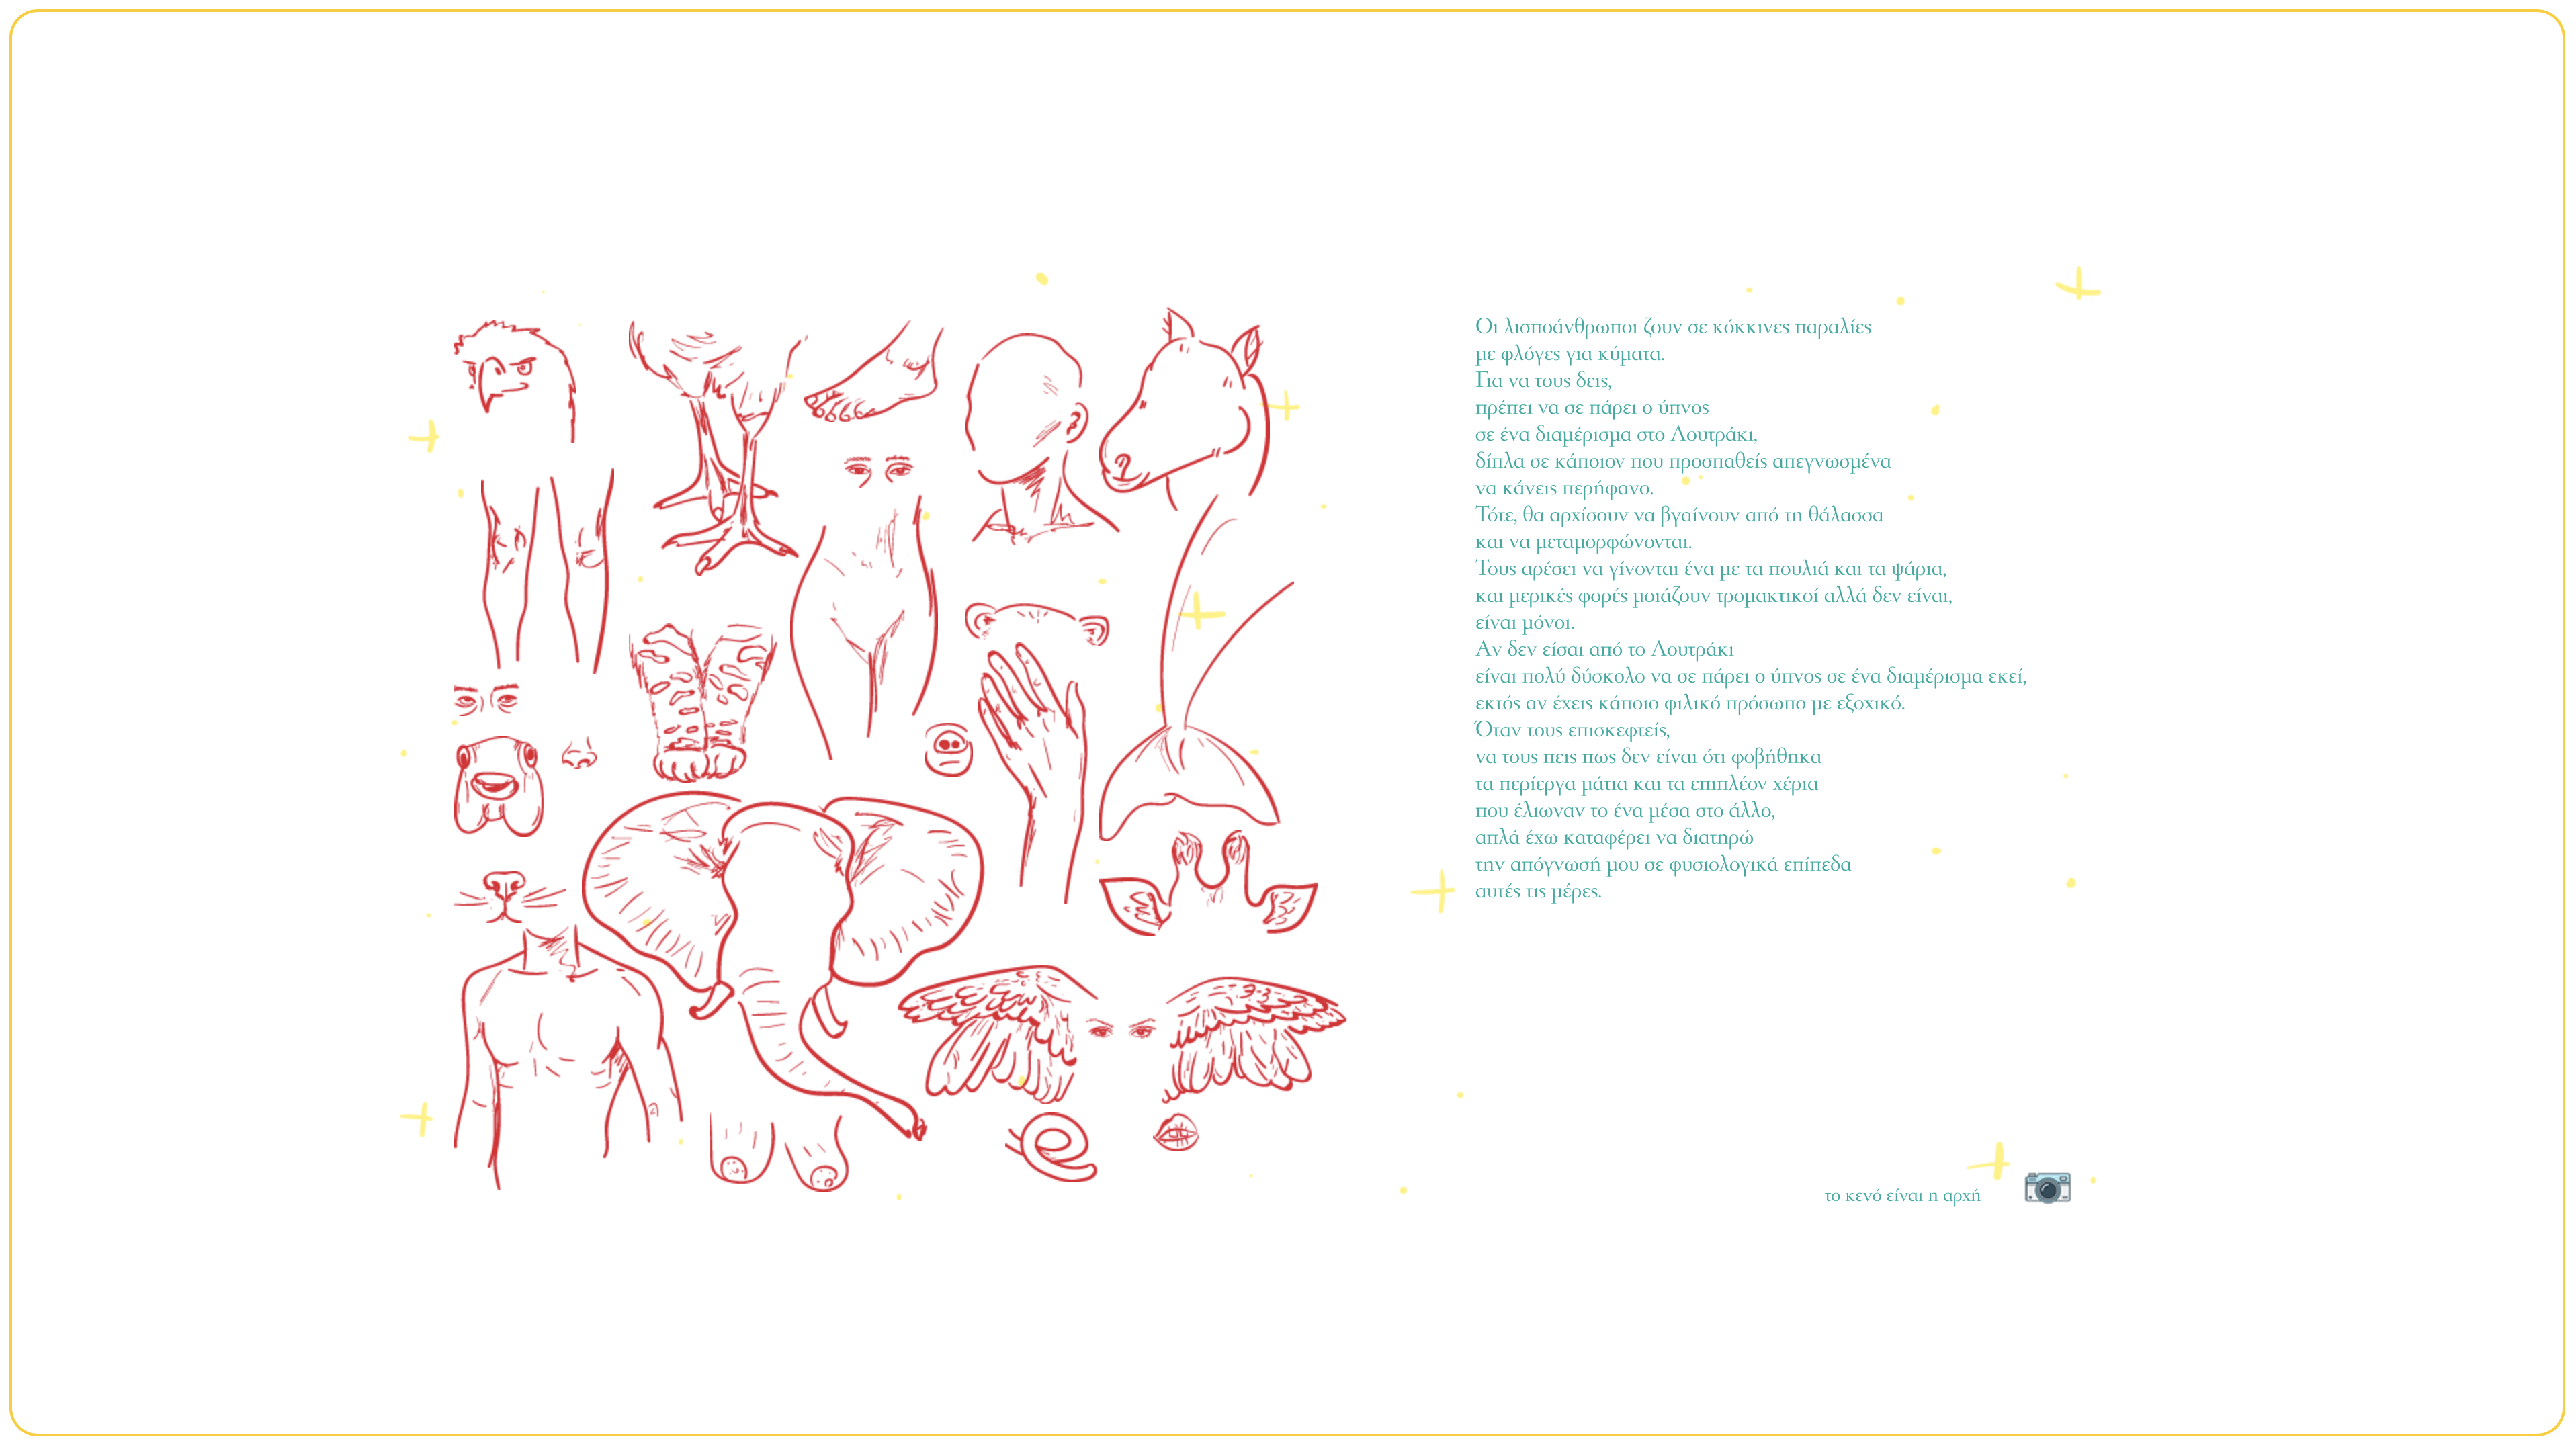 Οι λισποάνθρωποι ζουν σε κόκκινες παραλίες
με φλόγες για κύματα.
Για να τους δεις,
πρέπει να σε πάρει ο ύπνος
σε ένα διαμέρισμα στο Λουτράκι,
δίπλα σε κάποιον που προσπαθείς απεγνωσμένα
να κάνεις περήφανο.
Τότε, θα αρχίσουν να βγαίνουν από τη θάλασσα
και να μεταμορφώνονται.
Τους αρέσει να γίνονται ένα με τα πουλιά και τα ψάρια,
και μερικές φορές μοιάζουν τρομακτικοί αλλά δεν είναι,
είναι μόνοι.
Αν δεν είσαι από το Λουτράκι
είναι πολύ δύσκολο να σε πάρει ο ύπνος σε ένα διαμέρισμα εκεί,
εκτός αν έχεις κάποιο φιλικό πρόσωπο με εξοχικό.
Όταν τους επισκεφτείς,
να τους πεις πως δεν είναι ότι φοβήθηκα
τα περίεργα μάτια και τα επιπλέον χέρια
που έλιωναν το ένα μέσα στο άλλο,
απλά έχω καταφέρει να διατηρώ
την απόγνωσή μου σε φυσιολογικά επίπεδα
αυτές τις μέρες.
το κενό είναι η αρχή